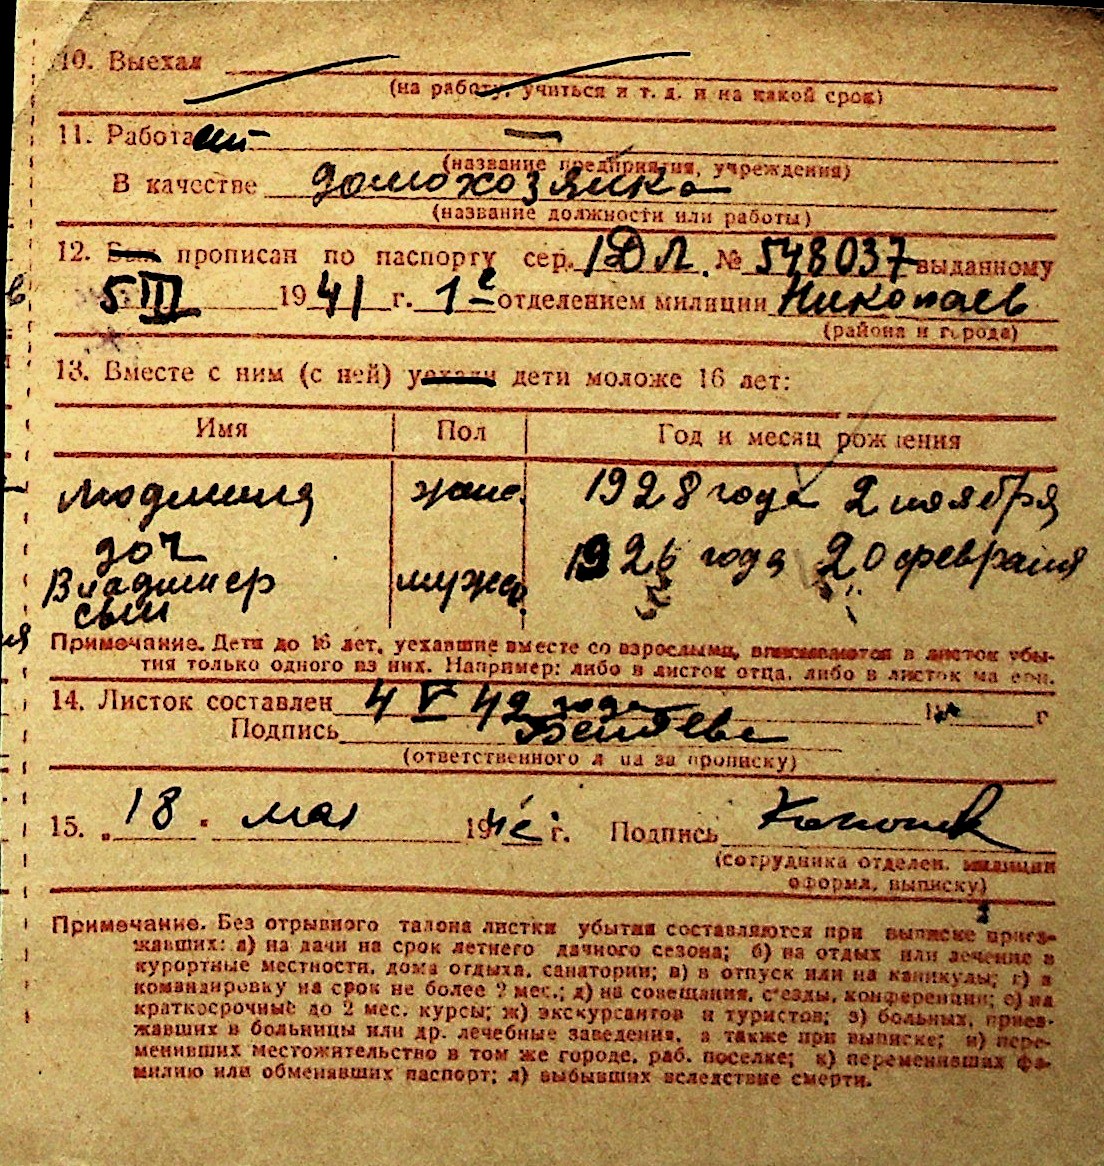 10. Выехал
(на работу, учиться и т. д. и на какой срок)
11. Работает —
(название предприятия, учреждения)
В качестве домохозяйка
(название должности или работы)
12. Был прописан по паспорту сер. IДЛ. № 548037 выданному
5 III 1941 г. 1е отделением милиции Николаев
(района и города)
13. Вместе с ним (с ней) уехали дети моложе 16 лет:
Имя Пол Год и месяц рождения
Людмила женс. 1928 года 2 ноября
доч
Владимер мужс. 1926 года 20 февраля
сын
Примечание. Дети до 16 лет, уехавшие вместе со взрослыми, вписываются в листок убы-
тия только одного из них. Например: либо в листок отца, либо в листок матери.
14. Листок составлен 4 V 42 года г
Подпись
(ответственного лица за прописку)
15. „18" мая 194 г. Подпись
(сотрудника отделен. милиции
оформл. выписку)
Примечание. Без отрывного талона листки убытия составляются при выписке приез-
жавших: а) на дачи на срок летнего дачного сезона; б) на отдых или лечение в
курортные местности, дома отдыха, санатории; в) в отпуск или на каникулы; г) в
командировку на срок не более 2 мес.; д) на совещания, съезды, конференции; е) на
краткосрочные до 2 мес. курсы; ж) экскурсантов и туристов; з) больных, приез-
жавших в больницы или др. лечебные заведения, а также при выписке; и) пере-
менивших местожительство в том же городе, раб. поселке; к) переменивших фа-
милию или обменявших паспорт; л) выбывших вследствие смерти.